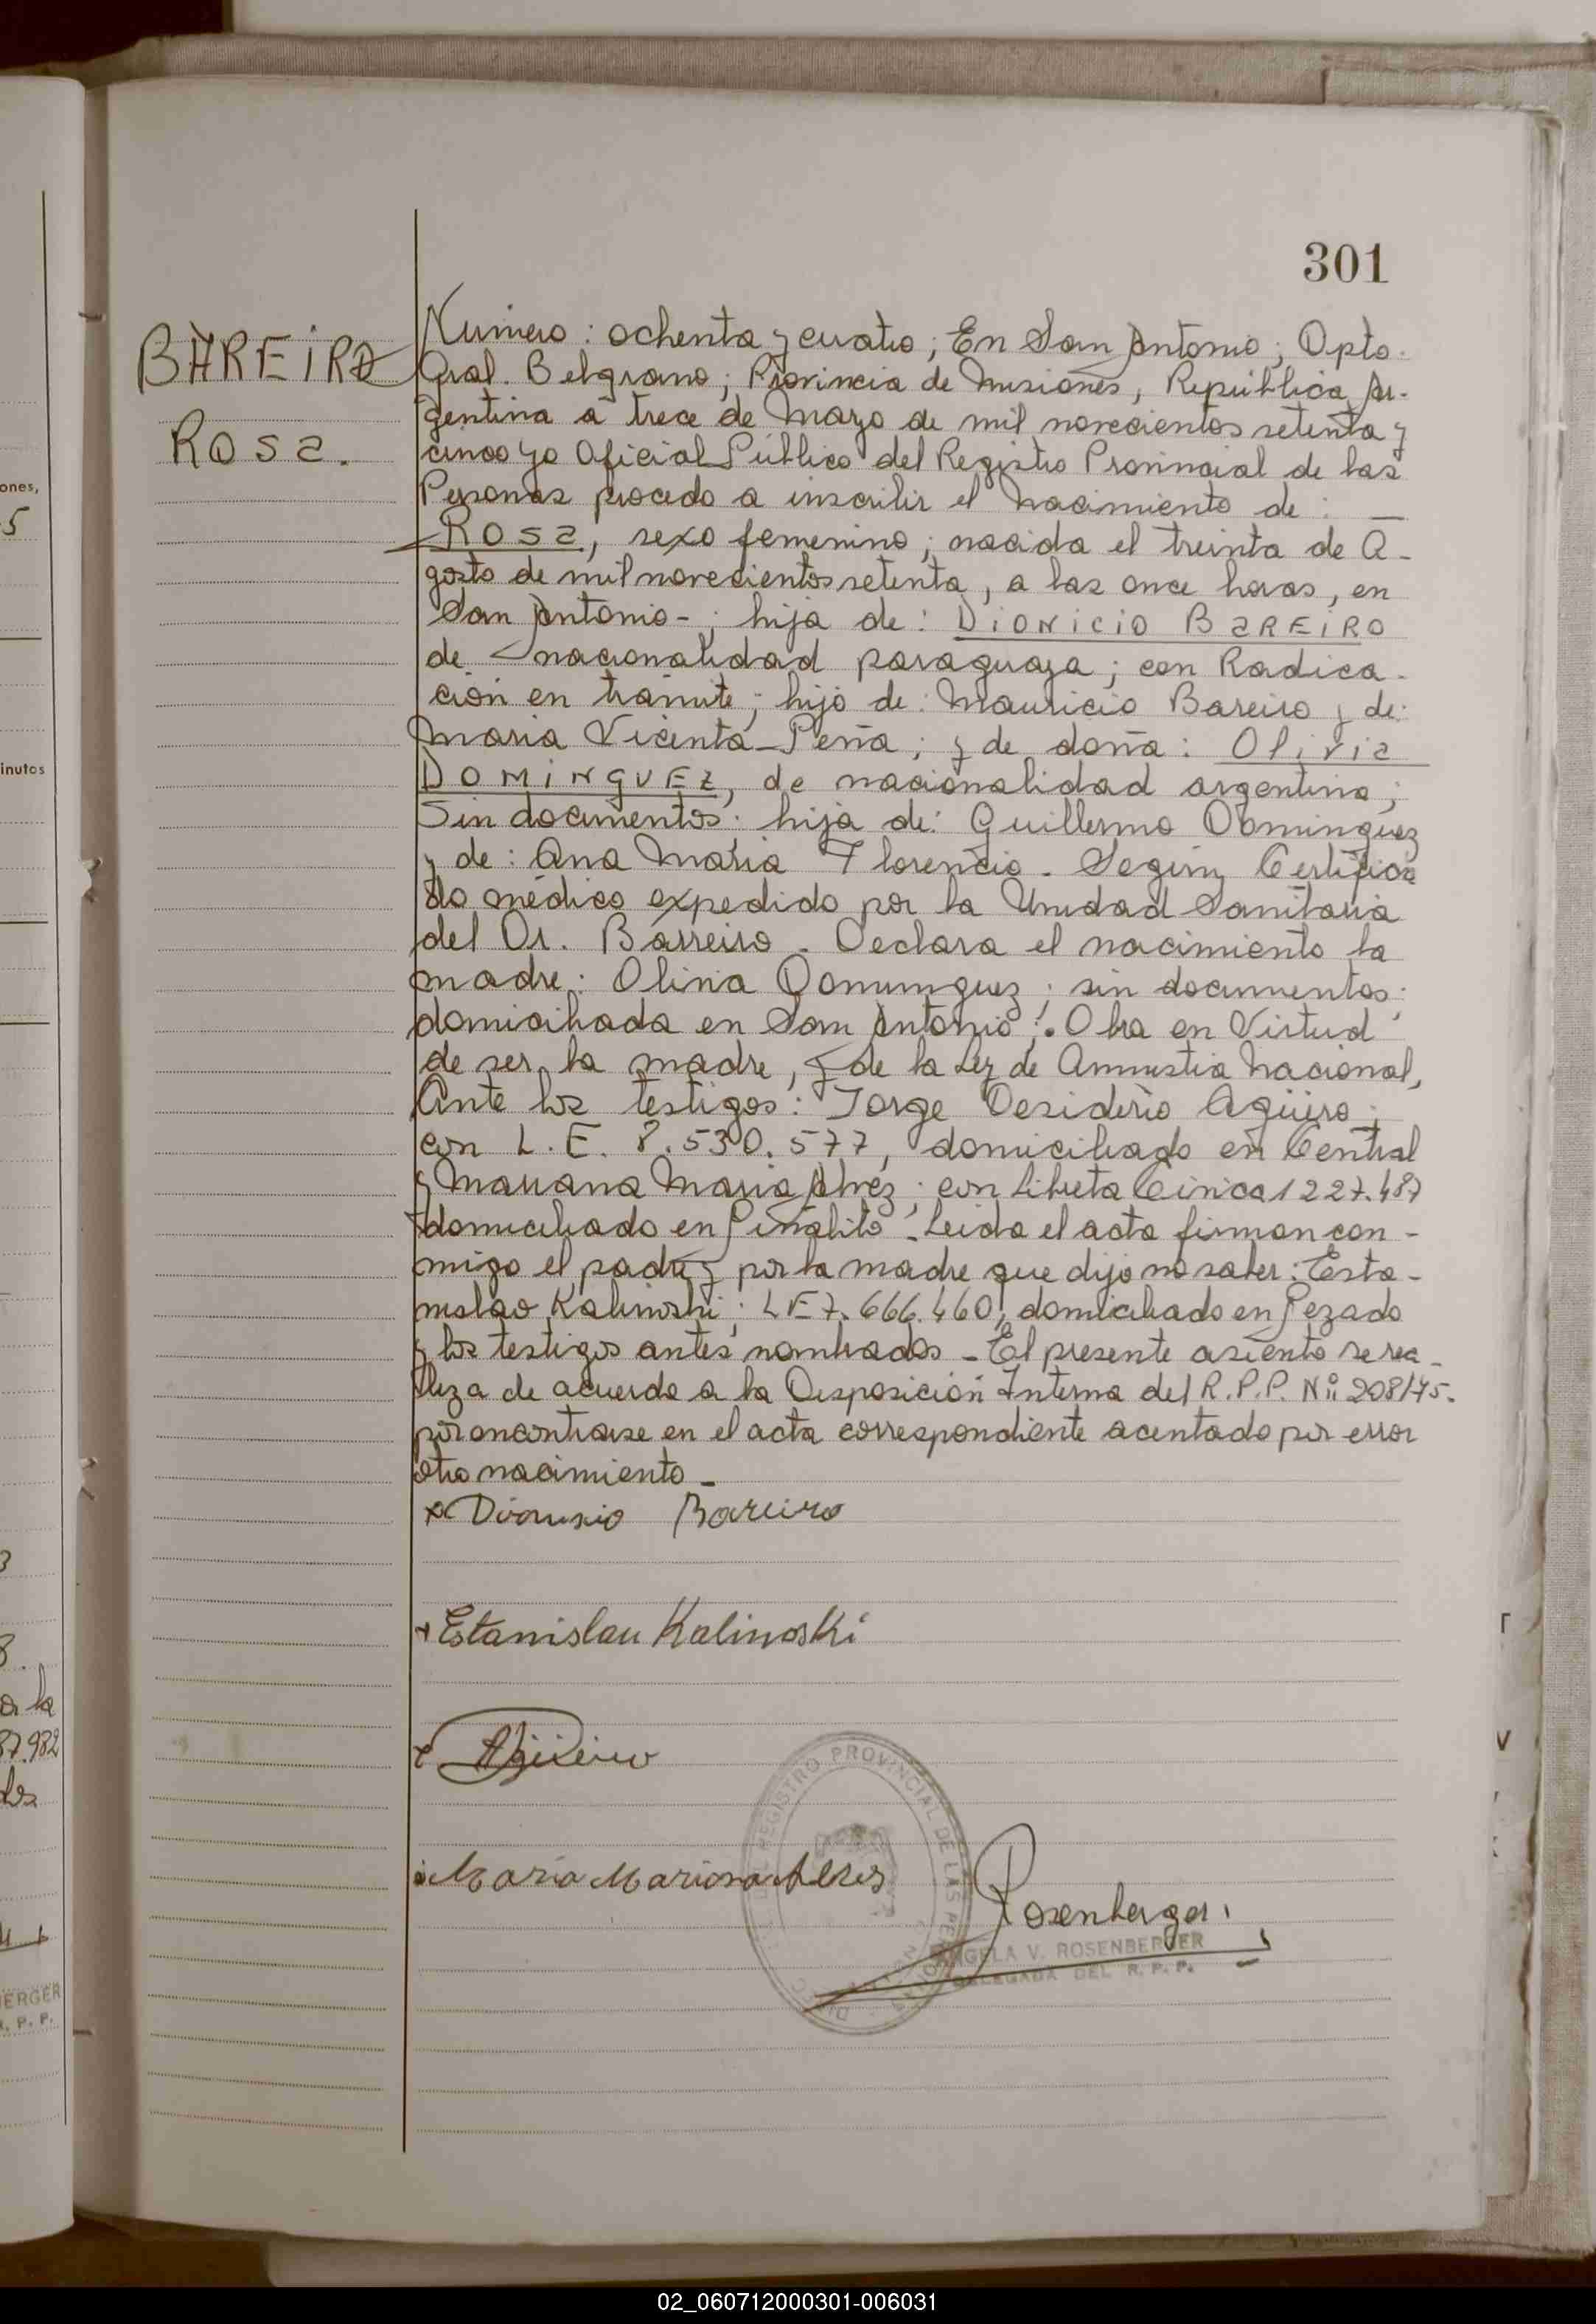 301
BAREIRO
Rosa.
Numero: ochenta y cuatro; En San Antonio; Dpto.
Gral. Belgrano; Provincia de Misiones, República Ar-
gentina a trece de Marzo de mil novecientos setenta y
cinco yo Oficial Público del Registro Provincial de las
Personas procedo a inscribir el Nacimiento de: —
Rosa, sexo femenino; nacida el treinta de A-
gosto de mil novecientos setenta, a las once horas, en
San Antonio-; hija de: DIONICIO BAREIRO
de nacionalidad paraguaya; con Radica-
ción en trámite; hijo de: Mauricio Bareiro y de:
Maria Vicenta Peña; y de doña: Olivia
DOMINGUEZ, de nacionalidad argentina;
Sin documentos: hija de: Guillermo Dominguez
y de: Ana Maria Florencio. Según Certifica
do médico expedido por la Unidad Sanitaria
del Dr. Barreiro. Declara el nacimiento la
madre: Olivia Dominguez; sin documentos;
domiciliada en San Antonio!. Obra en Virtud
de ser la madre, y de la Ley de Amnistia Nacional,
Ante los testigos: Jorge Desiderio Agüero;
con L.E. 8.530.577, domiciliado en Central
y Mariana Maria Alvez; con Libreta Civica 1227.487
domiciliado en Piñalito. Leida el acta firman con-
migo el padre y por la madre que dijo no saber: Esta-
nislao Kalinoski; LE 7.666.460, domiciliado en Pozado
y los testigos antes nombrados - El presente asiento se rea-
liza de acuerdo a la Disposición Interna del R.P.P. Nº 208/75.
por encontrarse en el acta correspondiente acentado por error
otro nacimiento -
x Dionisio Bareiro
+ Estanislau Kalinoski
Agüero
Maria Mariana Alves
REGISTRO PROVINCIAL DE LAS PERSONAS
Rosenberger
ANGELA V. ROSENBERGER
DELEGADA DEL R. P. P.
ones,
5
inutos
3
8.
a la
87.982
los
BERGER
R. P. P.
02_060712000301-006031